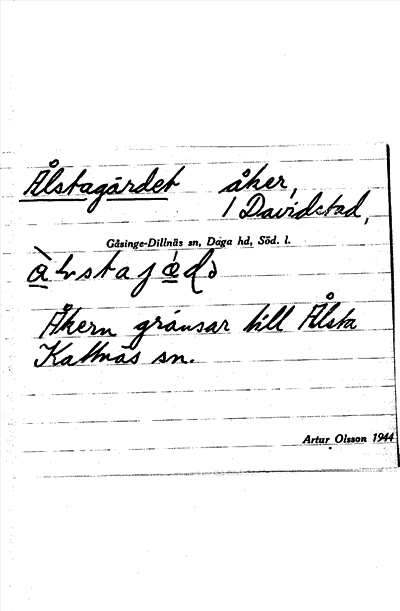 Ålstagärdet åker,
i Davidstad,
Gåsinge-Dillnäs sn, Daga hd, Söd. l.
Åkern gränsar till Ålsta
Kattnäs sn.
Artur Olsson 1944